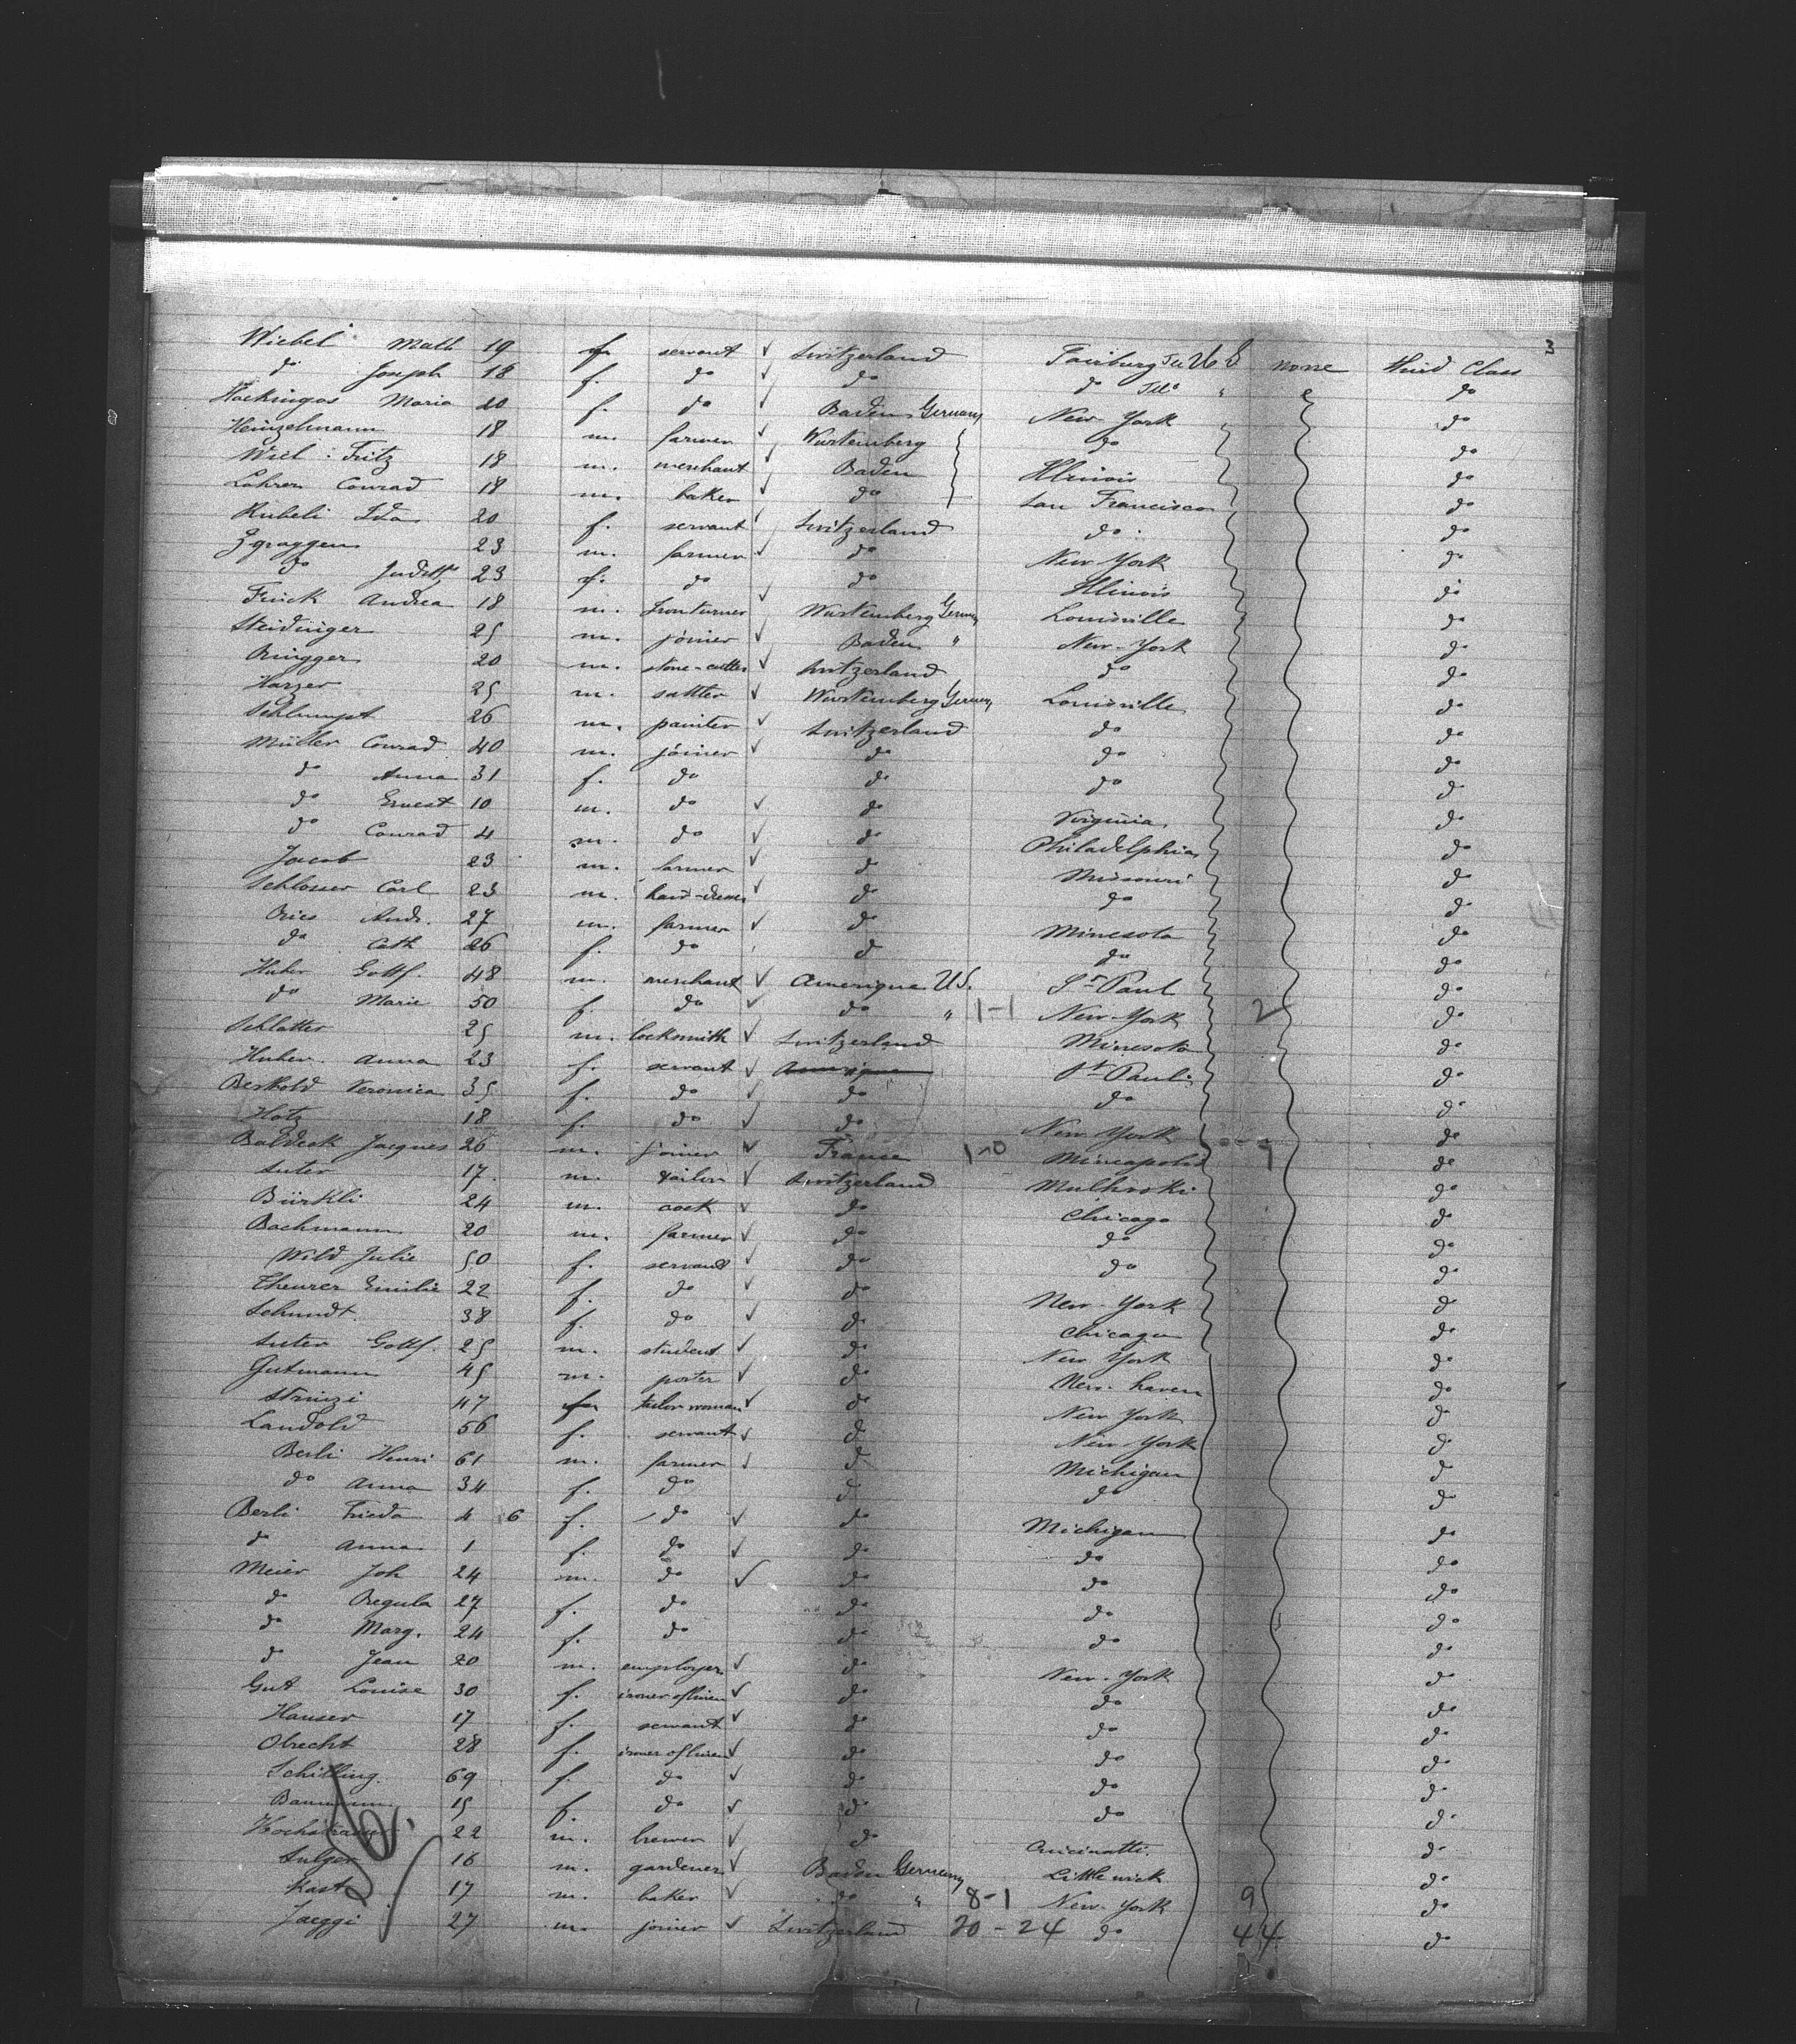 3
Wiebel Math 19 f. servant ✓ Switzerland Fairburg Ill U S none third Class
do Joseph 18 f. do ✓ do do Ill " do
Hackingos Maria 20 f. do ✓ Baden Germany New York " do
Heinzelmann 18 m. farmer ✓ Wurtemberg do do
Wiel : Fritz 18 m. merchant ✓ Baden Illinois do
Lohrer Conrad 18 m. baker ✓ do San Francisco do
Kubeli Ida 20 f. servant ✓ Switzerland do do
Zgraggen 23 m. farmer ✓ do New York do
do Judith 23 f. do ✓ do Illinois do
Frick Andrea 18 m. Iron turner ✓ Wurtemberg Germany Louisville do
Steidinger 25 m. joiner ✓ Baden " New-York do
Ringger 20 m. stone-cutter ✓ Switzerland do do
Harzer 25 m. sattler ✓ Wurtemberg Germany Louisville do
Schlumpf 26 m. painter ✓ Switzerland do do
Müller Conrad 40 m. joiner ✓ do do do
do Anna 31 f. do do do do
do Ernest 10 m. do ✓ do Virginia do
do Conrad 4 m. do ✓ do Philadelphia do
Jacob 23 m. farmer ✓ do Missouri do
Schlosser Carl 23 m. ✓ do do do
Ries Andr. 27 m. farmer ✓ do Minesota do
do Cath 26 f. do do do do
Huber Gottf. 48 m. merchant ✓ Amerique US. St Paul do
do Marie 50 f. do ✓ do " 1-1 New-York 2 do
Schlatter 25 m. locksmith ✓ Switzerland Minesota do
Huber Anna 23 f. servant ✓ Amerique St Paul do
Berthold Veronica 35 f. do ✓ do do do
Hotz 18 f. do ✓ do New York do
Baldeck Jacques 26 m. joiner ✓ France 1-0 Mineapolis 1 do
Suter 17 m. tailor ✓ Switzerland Mulhroki do
Bürkli 24 m. cook ✓ do Chicago do
Bachmann 20 m. farmer ✓ do do do
Wild Julie 50 f. servant ✓ do do do
Theurer Emilie 22 f. do ✓ do New-York do
Schmidt 38 f. do ✓ do Chicago do
Suter Gottf. 25 m. student ✓ do New York do
Gutmann 45 m. porter ✓ do New-haven do
Strinzi 47 f. tailor woman ✓ do New York do
Landold 56 f. servant ✓ do New-York do
Berli Henri 61 m. farmer ✓ do Michigan do
do Anna 34 f. do do do do
Berli Frieda 4 6 f. do ✓ do Michigan do
do Anna 1 f. do ✓ do do do
Meier Joh 24 m. do ✓ do do do
do Regula 27 f. do do do do
do Marg. 24 f. do do do do
do Jean 20 m. employer ✓ do New-York do
Gut Louise 30 f. ironer of linen ✓ do do do
Hauser 17 f. servant ✓ do do do
Obrecht 28 f. ironer of linen ✓ do do do
Schilling 69 f. do ✓ do do do
Baumann 15 f. do ✓ do do do
Hochstrasser 22 m. brewer ✓ do Cincinatti. do
Sulger 16 m. gardener ✓ Baden Germany Little wick do
Kast 17 m. baker ✓ do " 8-1 New-York 9 do
Jaeggi 27 m. joiner ✓ Switzerland 20 - 24 do 44 do